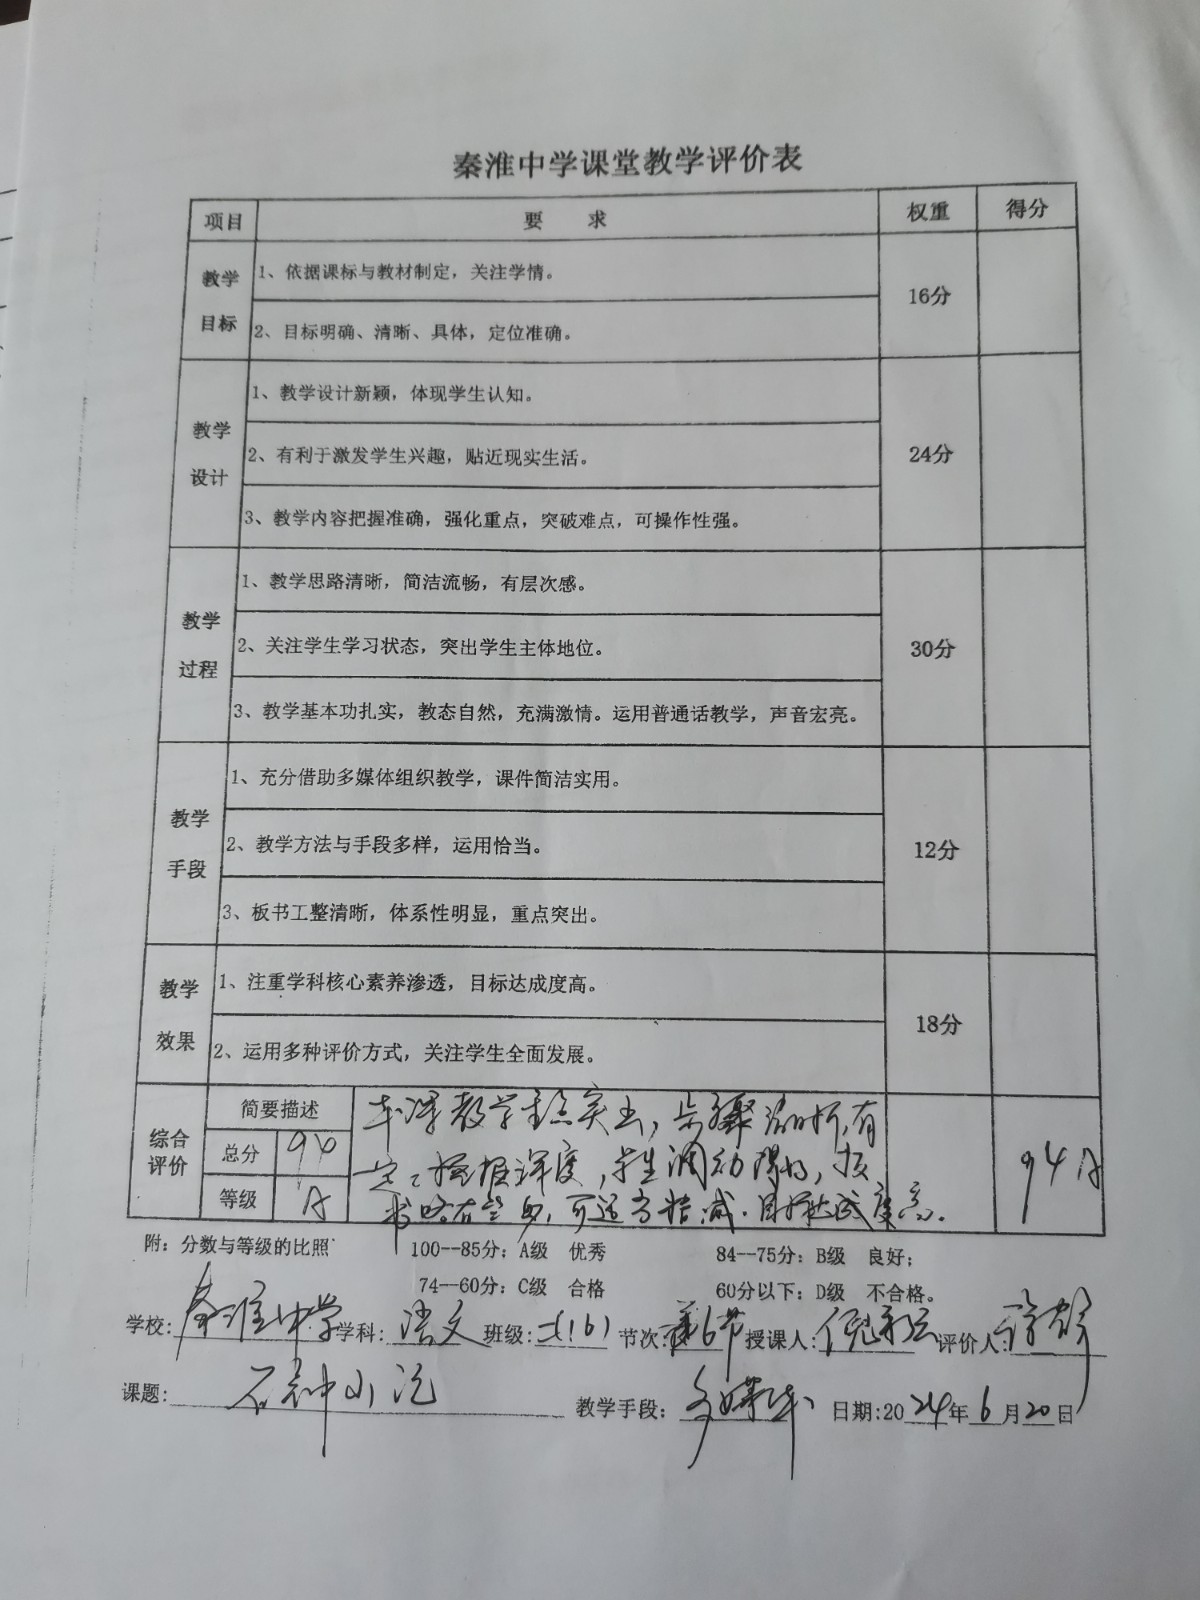 秦淮中学课堂教学评价表
项目 要 求 权重 得分
教学目标 1、依据课标与教材制定，关注学情。 16分
2、目标明确、清晰、具体，定位准确。
教学设计 1、教学设计新颖，体现学生认知。 24分
2、有利于激发学生兴趣，贴近现实生活。
3、教学内容把握准确，强化重点，突破难点，可操作性强。
教学过程 1、教学思路清晰，简洁流畅，有层次感。 30分
2、关注学生学习状态，突出学生主体地位。
3、教学基本功扎实，教态自然，充满激情。运用普通话教学，声音宏亮。
教学手段 1、充分借助多媒体组织教学，课件简洁实用。 12分
2、教学方法与手段多样，运用恰当。
3、板书工整清晰，体系性明显，重点突出。
教学效果 1、注重学科核心素养渗透，目标达成度高。 18分
2、运用多种评价方式，关注学生全面发展。
综合评价 简要描述 本课教学重点突出，步骤清晰，有
总分 94 定 挖掘深度，学生调动得好，板 94 A
等级 A 书略有 ，可适当精减.目标达成度高.
附：分数与等级的比照 100--85分：A级 优秀 84--75分：B级 良好；
74--60分：C级 合格 60分以下：D级 不合格。
学校: 秦淮中学 学科: 语文 班级: 节次: 第6节 授课人: 倪 评价人:
课题: 石钟山记 教学手段: 多媒体 日期:2024年6月20日